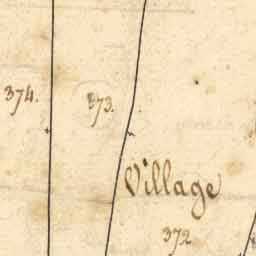 374.
373.
Village
372